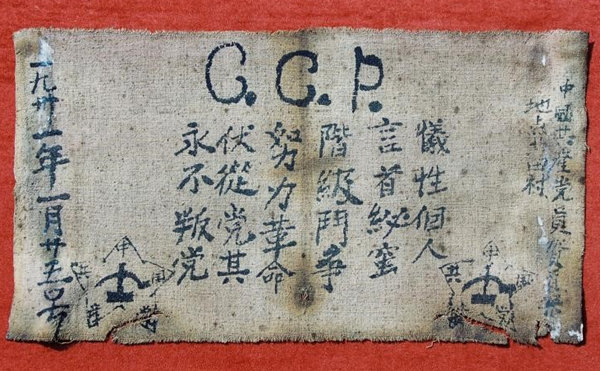 C.C.P.
中國共產党員
地点 田村
犧牲個人
言首秘蜜
階級鬥争
努力革命
伏從党其
永不叛党
一九卅一年一月廿五号